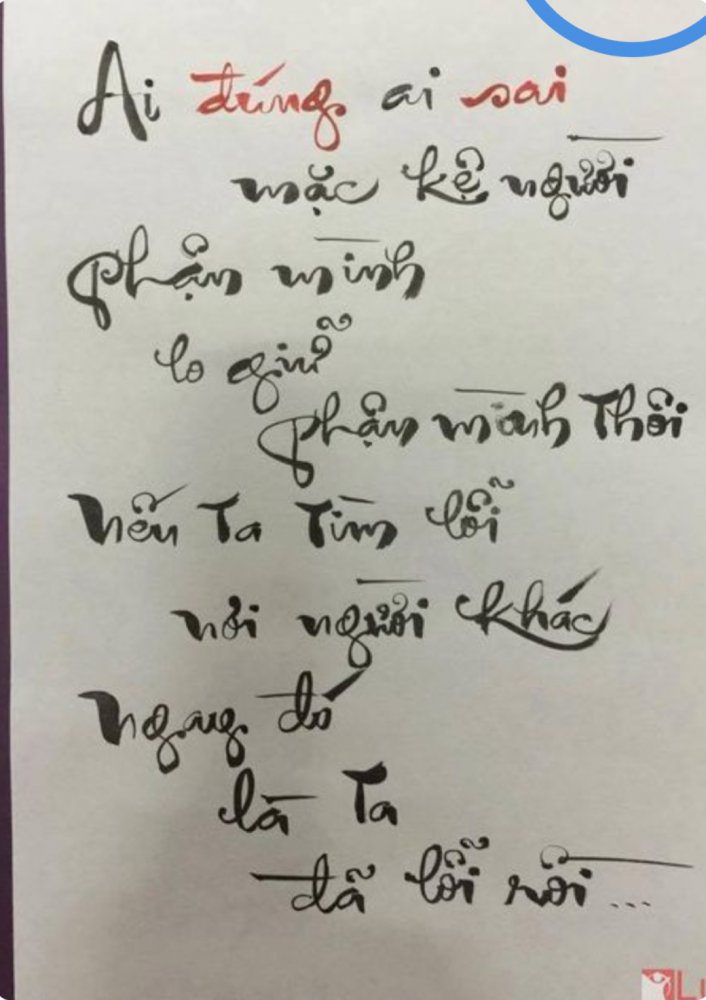 Ai đúng ai sai
mặc kệ người
Phận mình
lo giữ
phận mình thôi
Nếu Ta Tìm lỗi
nơi người khác
Ngang đó
là Ta
đã lỗi rồi...